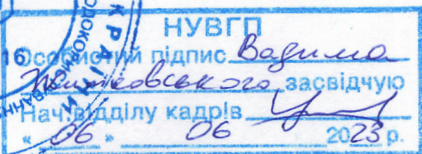 НУВГП
Особистий підпис Вадима
Житковського засвідчую
Нач. відділу кадрів
« 06 » 06 2023 р.